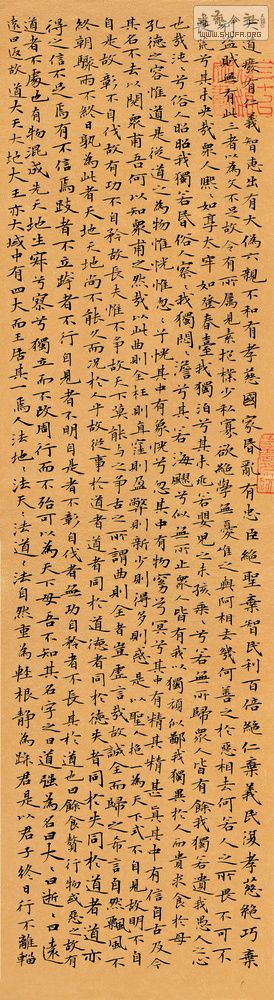 大道廢有仁義智惠出有大偽六親不和有孝慈國家昏亂有忠臣絕聖棄智民利百倍絕仁棄義民復孝慈絕巧棄
利盜賊無有此三者以為文不足故令有所屬見素抱樸少私寡欲絕學無憂唯之與阿相去幾何善之於惡相去何若人之所畏不可不
畏荒兮其未央哉眾人熙々如享太牢如登春臺我獨泊兮其未兆若嬰兒之未孩乘々兮若無所歸眾人皆有餘我獨若遺我愚人之心
也哉沌兮俗人昭昭我獨若昏俗人察々我獨悶々澹兮其若海飂兮似無所止眾人皆有以我獨頑似鄙我獨異於人而貴求食於母
孔德之容惟道是從道之為物惟恍惟忽忽兮恍其中有象恍兮忽其中有物窈兮冥兮其中有精其精甚真其中有信自古及今
其名不去以閱眾甫吾何以知眾甫之然哉以此曲則全枉則直窪則盈弊則新少則得多則惑是以聖人抱一為天下式不自見故明不自
是故彰不自伐故有功不自矜故長夫惟不爭故天下莫能與之爭古之所謂曲則全者豈虛言哉故誠全而歸之希言自然飄風不
終朝驟雨不終日孰為此者天地天地尚不能久而況於人乎故從事於道者道者同於道德者同於德失者同於失同於道者道亦
得之信不足焉有不信焉跂者不立跨者不行自見者不明自是者不彰自伐者無功自矜者不長其於道也曰餘食贅行物或惡之故有
道者不處也有物混成先天地生寂兮寥兮獨立而不改周行而不殆可以為天下母吾不知其名字之曰道強為名曰大々曰逝々曰遠
遠曰返故道大天大地大王亦大域中有四大而王居其一焉人法地々法天々法道々法自然重為輕根靜為躁君是以君子終日行不離輜